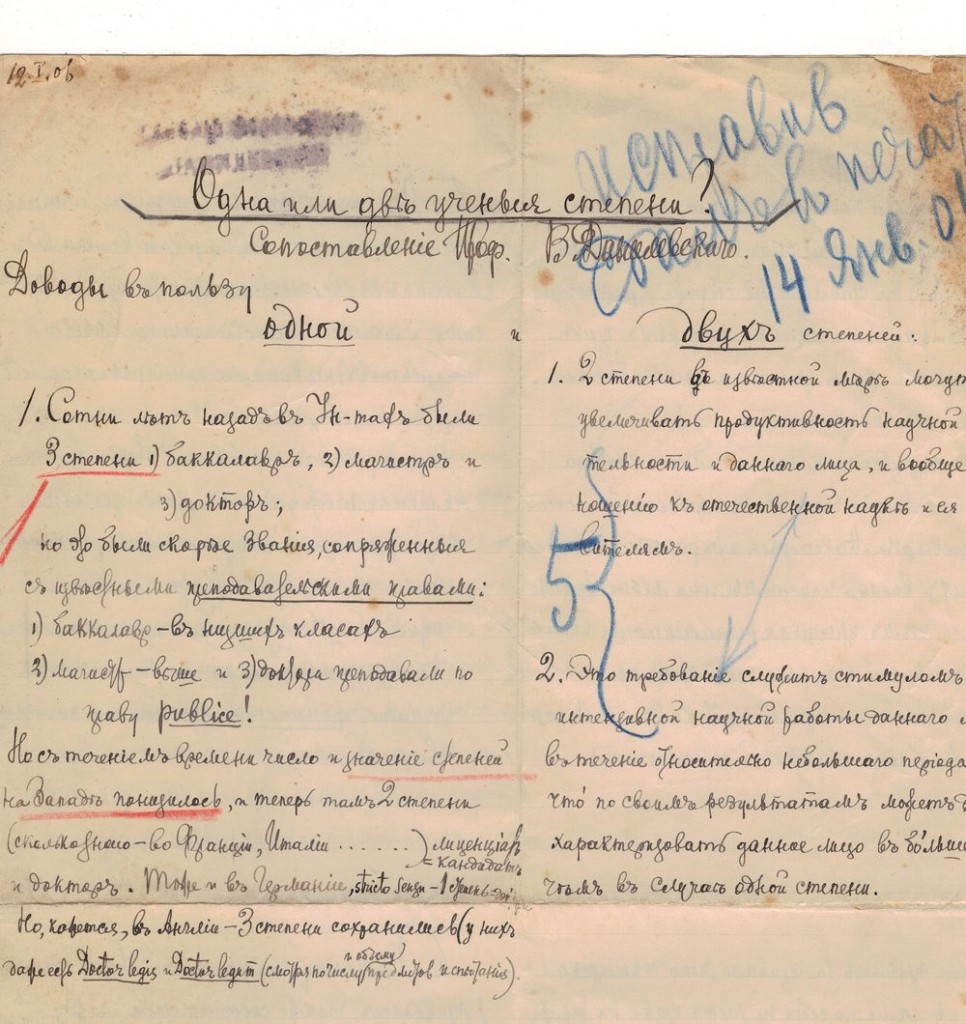 12.I.06
Исправив
14 Янв. 0
Одна или двѣ ученыя степени?
Сопоставленіе Проф. В. Данилевскаго.
Доводы въ пользу
одной и двухъ степеней:
1. Сотни лѣтъ назадъ въ Ун-тахъ были
3 степени 1) баккалавръ, 2) магистръ и
3) докторъ;
но это были скорѣе званія, сопряженныя
съ извѣстными преподавательскими правами:
1) баккалавр – въ низшихъ класахъ
2) магистр – выше и 3) доктора преподавали по
праву publice!
Но съ теченіемъ времени число и значеніе степеней
на Западѣ понизилось, и теперь тамъ 2 степени
(сколько знаю – во Франціи, Италіи ......) лиценціатъ
= кандидатъ
и докторъ. Тоже и въ Германіи, stricto sensu – 1 степень
Но, кажется, въ Англіи – 3 степени сохранились (у нихъ
даже есть Doctor legis и Doctor legum (смотря по числу и объему предметов испытанія).
1. 2 степени въ извѣстной мѣрѣ могут
увеличивать продуктивность научной
тельности и даннаго лица, и вообще
ношенію къ отечественной наукѣ и ея
вителямъ.
5
2. Это требованіе служитъ стимуломъ
интензивной научной работы даннаго
въ теченіе относительно небольшаго періода
что по своимъ результатамъ можетъ
характеризовать данное лицо въ больше
чѣмъ въ случаѣ одной степени.